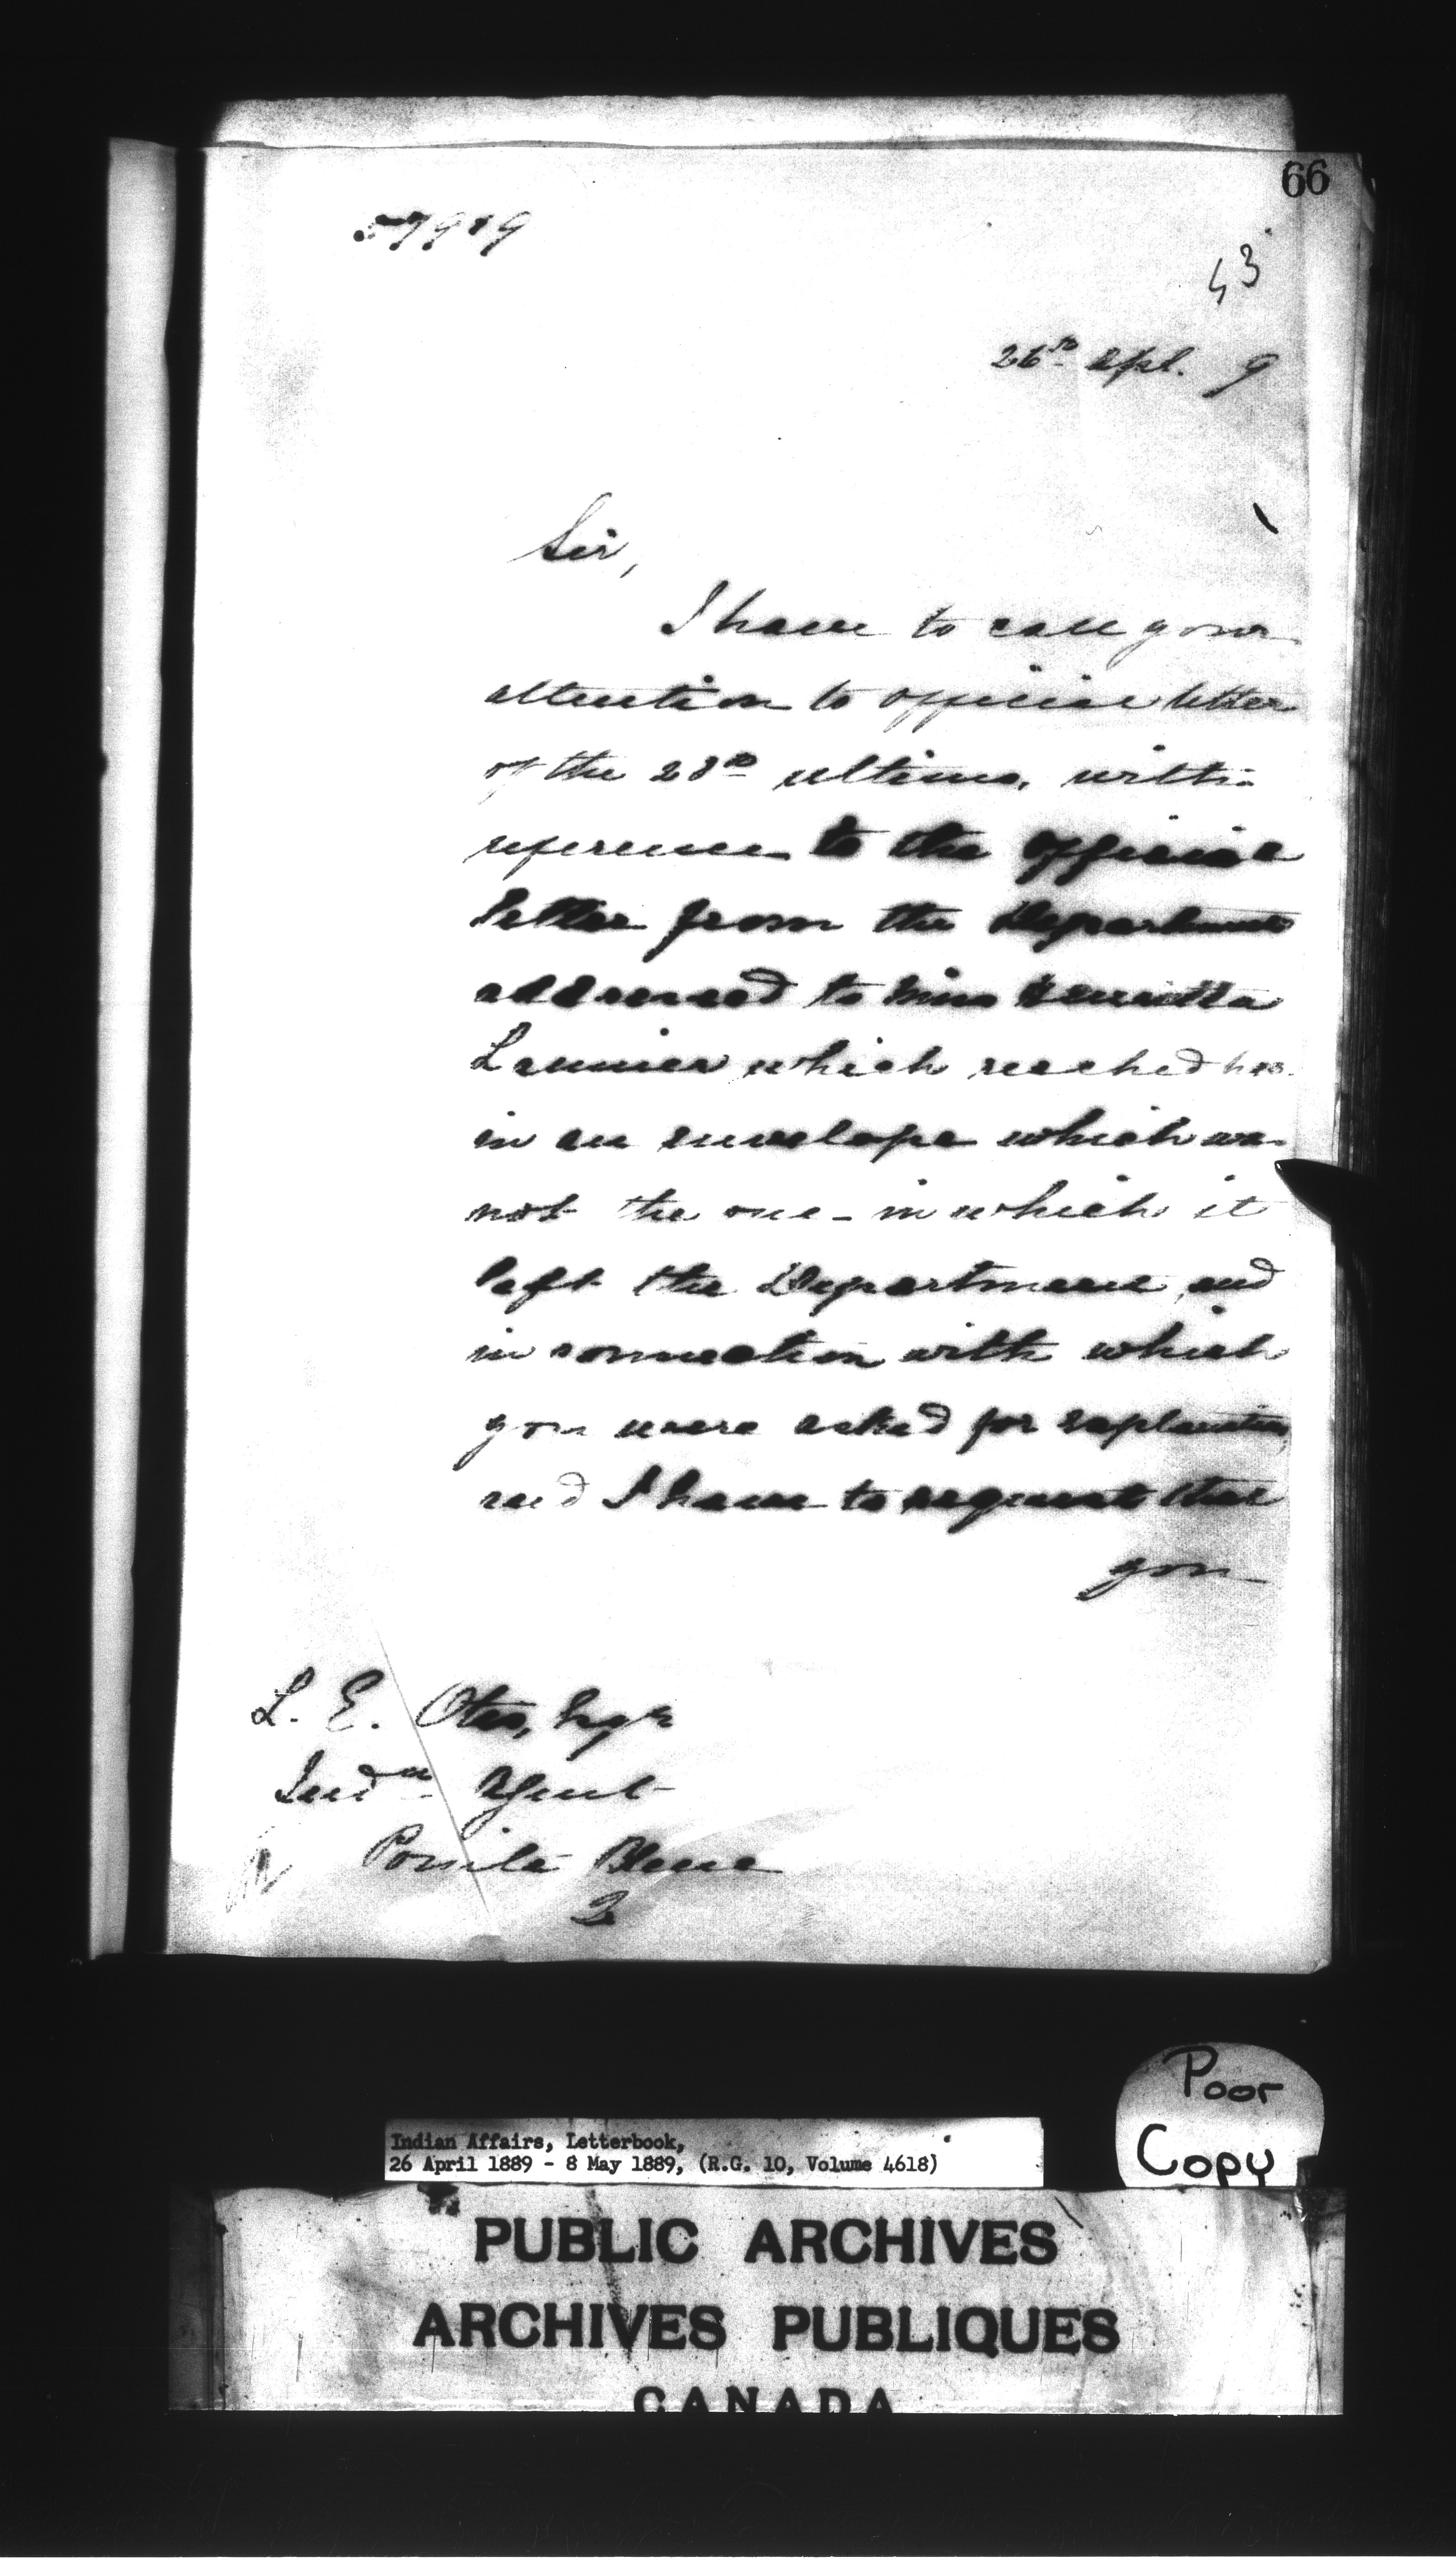 66
43
26th Apl. 9
Sir,
I have to call your
attention to official letter
of the 28th ultimo, with
reference to the official
letter from the Department
addressed to Miss Henrietta
which reached her
in an envelope which was
not the one in which it
left the Department and
in connection with which
you were asked for explanation
and I have to request that
you
L. E. Otis, Esqr
Indn Agent
Pointe Bleue
Poor
Copy
Indian Affairs, Letterbook,
26 April 1889 - 8 May 1889, (R.G. 10, Volume 4618)
PUBLIC ARCHIVES
ARCHIVES PUBLIQUES
CANADA